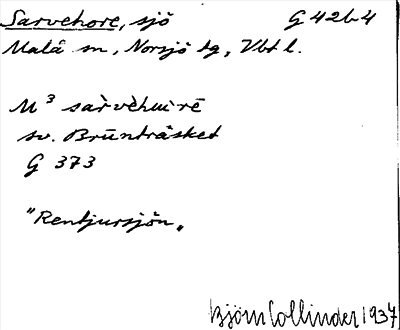 Sarvehore, sjö G 42b4
Malå sn, Norsjö tg, Vbt l.
M³ sar̀vèhuìrē
sv. Brūnträsket
G 373
"Rentjursjön„
Björn Collinder 1937